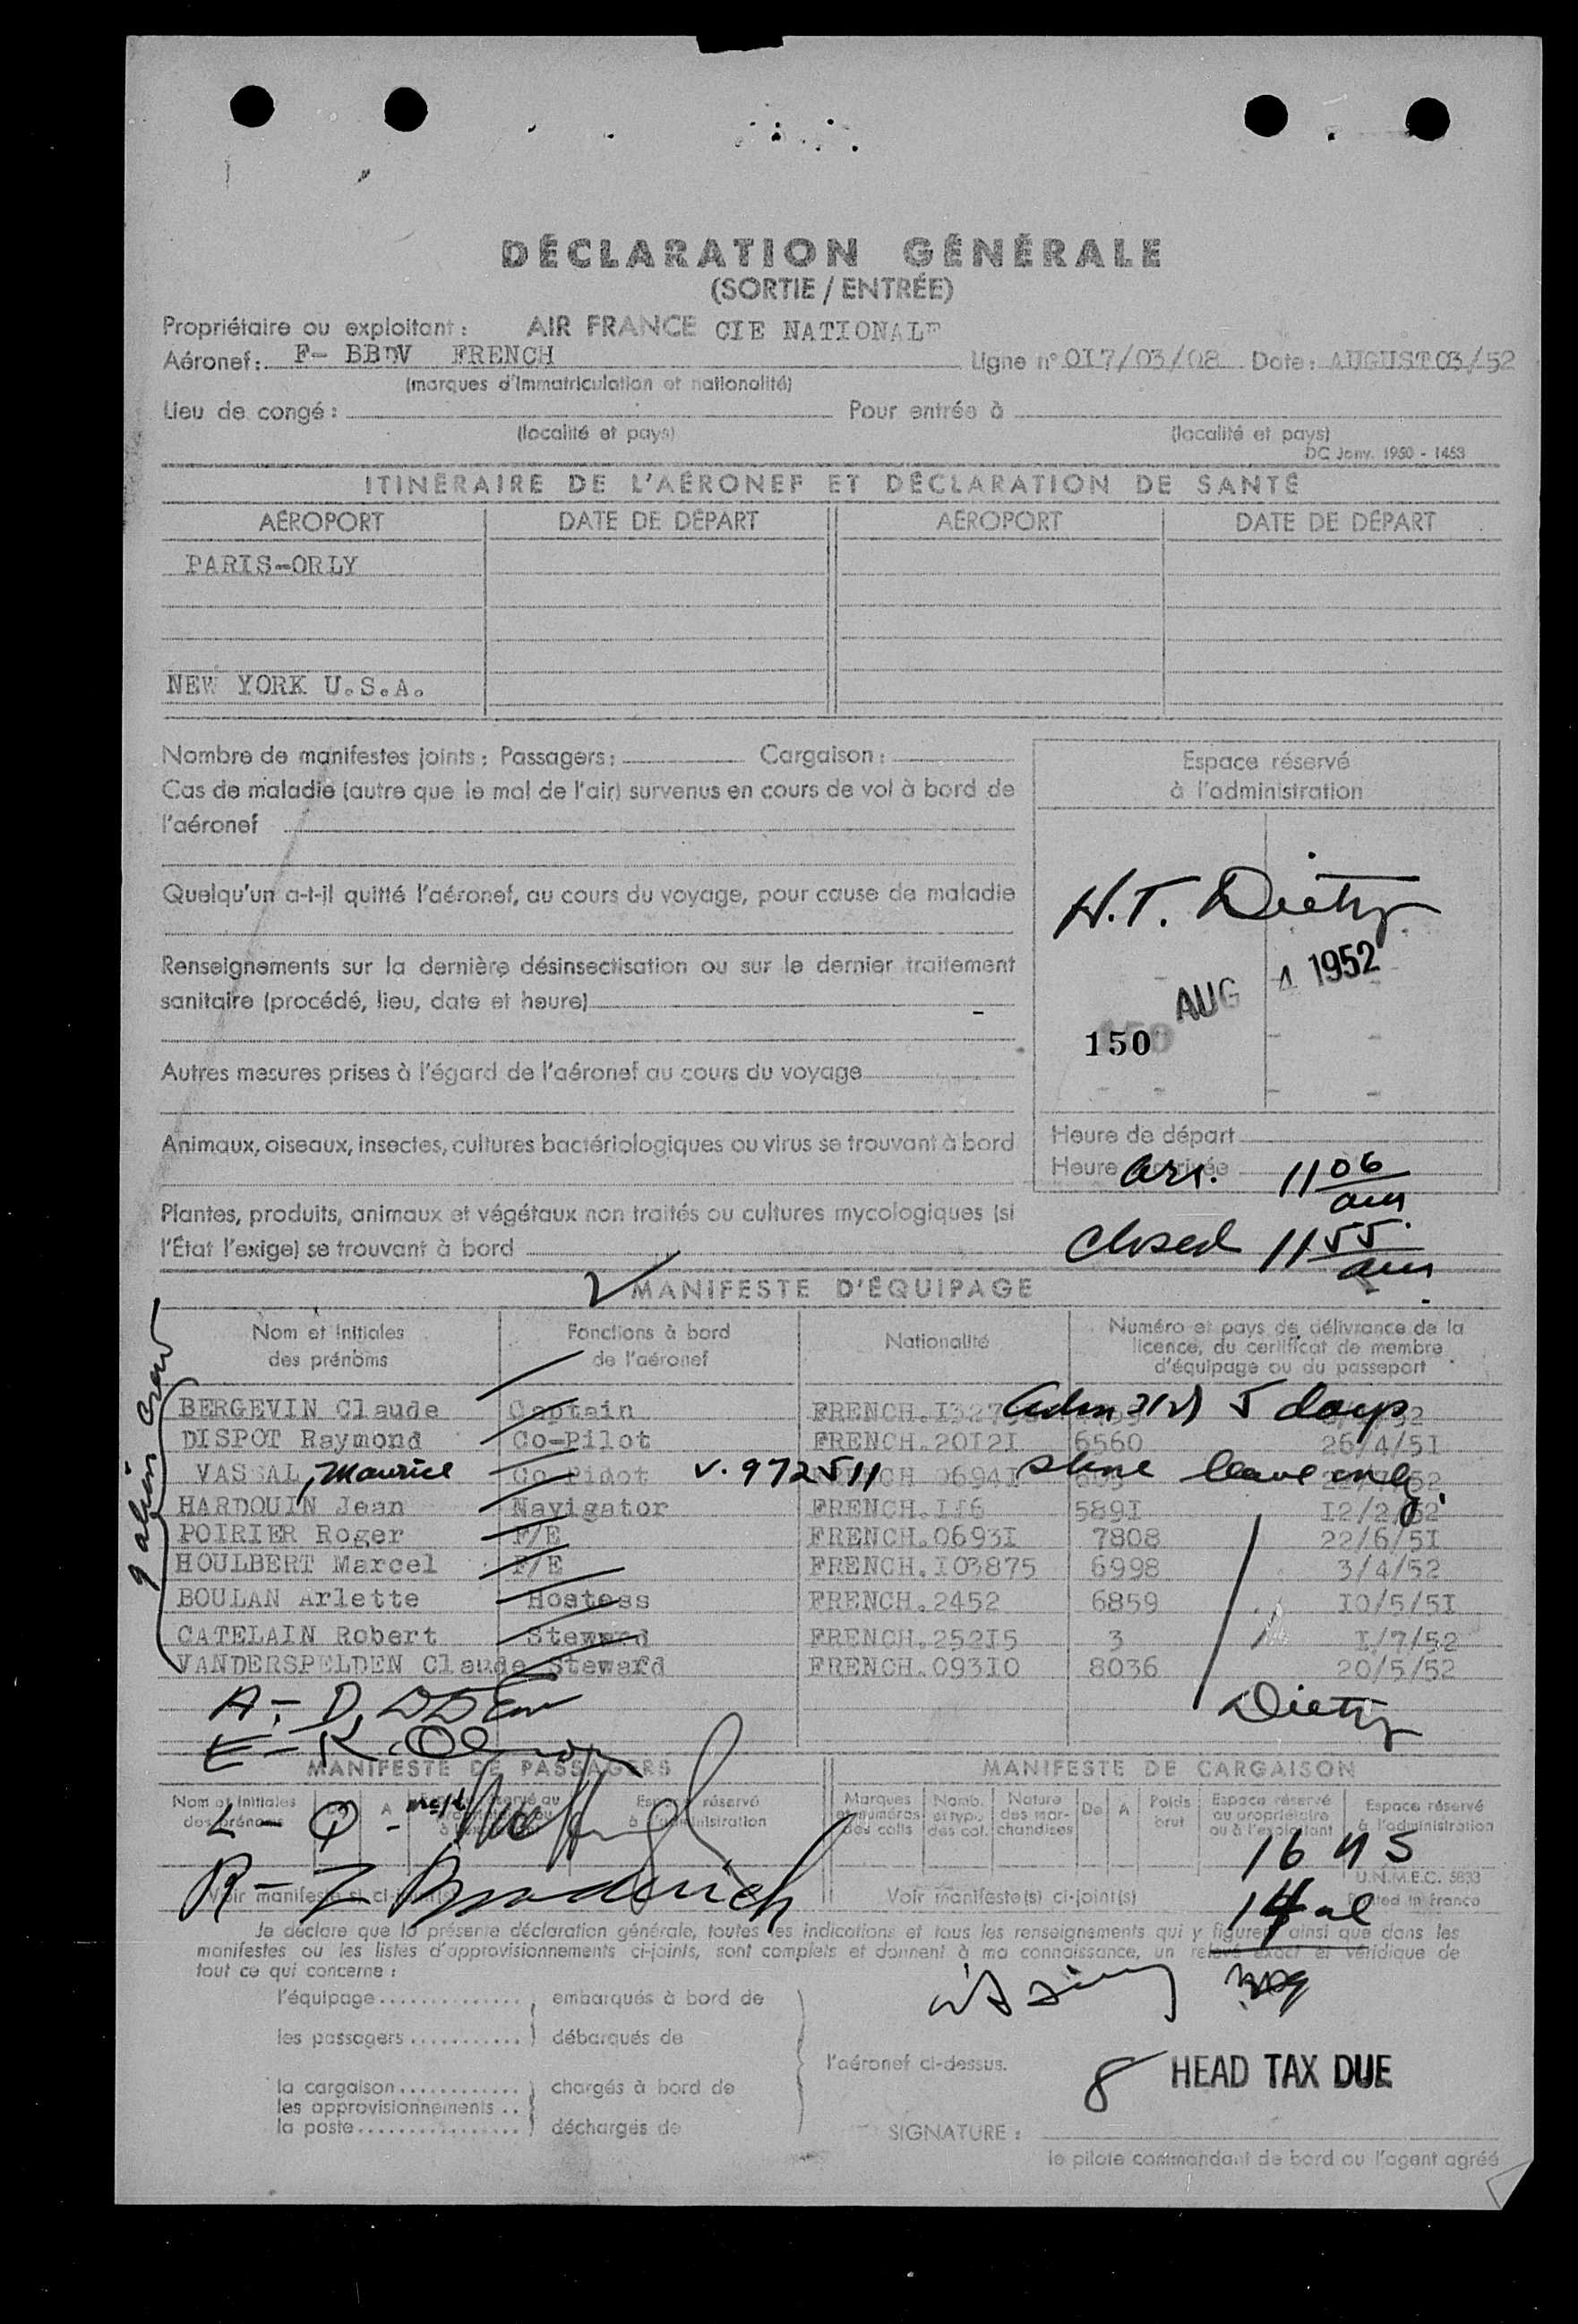 DÉCLARATION GÉNÉRALE
(SORTIE / ENTRÉE)
Propriétaire ou exploitant : AIR FRANCE CIE NATIONALE
Aéronef : F- BBDV FRENCH Ligne n° 0I7/03/08 Date : AUGUST 03/52
(marques d'immatriculation et nationalité)
Lieu de congé : Pour entrée à
(localité et pays) (localité et pays)
DC Janv. 1950 - 1453
ITINÉRAIRE DE L'AÉRONEF ET DÉCLARATION DE SANTÉ
AÉROPORT DATE DE DÉPART AÉROPORT DATE DE DÉPART
PARIS-ORLY
NEW YORK U.S.A.
Nombre de manifestes joints : Passagers : Cargaison :
Espace réservé
à l'administration
Cas de maladie (autre que le mal de l'air) survenus en cours de vol à bord de
l'aéronef
Quelqu'un a-t-il quitté l'aéronef, au cours du voyage, pour cause de maladie
H.T. Dietz
Renseignements sur la dernière désinsectisation ou sur le dernier traitement
sanitaire (procédé, lieu, date et heure)
AUG 4 1952
150
Autres mesures prises à l'égard de l'aéronef au cours du voyage
Animaux, oiseaux, insectes, cultures bactériologiques ou virus se trouvant à bord
Heure de départ
Heure arr. 11 06 am
Plantes, produits, animaux et végétaux non traités ou cultures mycologiques (si
l'État l'exige) se trouvant à bord
closed 11 55 am
MANIFESTE D'ÉQUIPAGE
Nom et initiales des prénoms
Fonctions à bord de l'aéronef
Nationalité
Numéro et pays de délivrance de la licence, du certificat de membre d'équipage ou du passeport
9 alien crew
BERGEVIN Claude Captain FRENCH. Adm 5 days
DISPOT Raymond Co-Pilot FRENCH.20I2I 6560 26/4/5I
VASSAL, Maurice Co Pilot V. 972511 shore leave only.
HARDOUIN Jean Navigator FRENCH.II6 589I I2/2/52
POIRIER Roger F/E FRENCH.0693I 7808 22/6/5I
HOULBERT Marcel F/E FRENCH.I03875 6998 3/4/52
BOULAN Arlette Hostess FRENCH.2452 6859 I0/5/5I
CATELAIN Robert Steward FRENCH.252I5 3 I/7/52
VANDERSPELDEN Claude Steward FRENCH.093I0 8036 20/5/52
Dietz
MANIFESTE DE PASSAGERS MANIFESTE DE CARGAISON
Nom et initiales des prénoms
A
Espace réservé à l'administration
Marques et numéros des colis
Nomb. et typ. des col.
Nature des marchandises
De
A
Poids brut
Espace réservé au propriétaire ou à l'exploitant
Espace réservé à l'administration
U.N.M.E.C. 5833
Voir manifeste(s) ci-joint(s) Voir manifeste(s) ci-joint(s)
Printed in France
Je déclare que la présente déclaration générale, toutes les indications et tous les renseignements qui y figurent ainsi que dans les
manifestes ou les listes d'approvisionnements ci-joints, sont complets et donnent à ma connaissance, un relevé exact et véridique de
tout ce qui concerne :
l'équipage embarqués à bord de
les passagers débarqués de
l'aéronef ci-dessus.
la cargaison chargés à bord de
les approvisionnements
la poste déchargés de
8 HEAD TAX DUE
SIGNATURE :
le pilote commandant de bord ou l'agent agréé